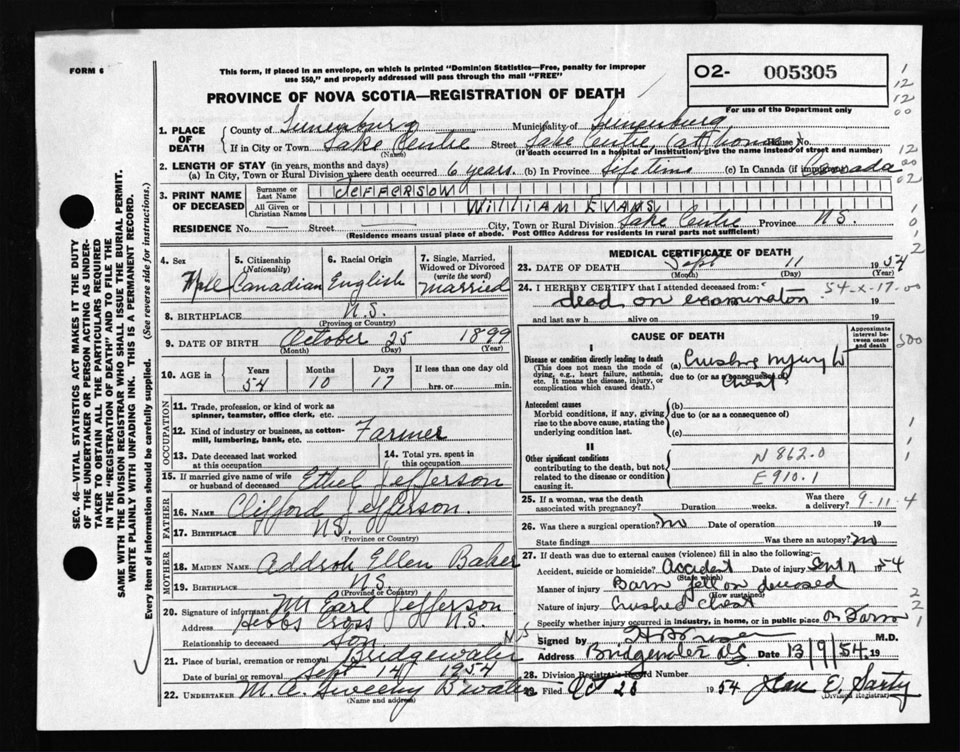 FORM 6
This form, if placed in an envelope, on which is printed "Dominion Statistics—Free, penalty for improper
use $50," and properly addressed will pass through the mail "FREE"
PROVINCE OF NOVA SCOTIA—REGISTRATION OF DEATH
O2- 005305
For use of the Department only
1. PLACE OF DEATH
County of Lunenburg Municipality of Lunenburg
If in City or Town Lake Centre Street Lake Centre, (at home) House No.
(Name) (If death occurred in a hospital or institution, give the name instead of street and number)
2. LENGTH OF STAY (in years, months and days)
(a) In City, Town or Rural Division where death occurred 6 years. (b) In Province Life time (c) In Canada (if immigrant) Canada
3. PRINT NAME OF DECEASED
Surname or Last Name JEFFERSON
All Given or Christian Names WILLIAM EVANS
RESIDENCE No. — Street — City, Town or Rural Division Lake Centre Province N.S.
(Residence means usual place of abode. Post Office Address for residents in rural parts not sufficient)
4. Sex Male
5. Citizenship (Nationality) Canadian
6. Racial Origin English
7. Single, Married, Widowed or Divorced (write the word) Married
8. BIRTHPLACE N.S.
(Province or Country)
9. DATE OF BIRTH October 25 1899
(Month) (Day) (Year)
10. AGE in Years Months Days If less than one day
54 10 17 hrs. or min.
OCCUPATION
11. Trade, profession, or kind of work as spinner, teamster, office clerk, etc.
12. Kind of industry or business, as cotton-mill, lumbering, bank, etc. Farmer
13. Date deceased last worked at this occupation
14. Total yrs. spent in this occupation
15. If married give name of wife or husband of deceased Ethel Jefferson
FATHER
16. NAME Clifford Jefferson.
17. BIRTHPLACE N.S.
(Province or Country)
MOTHER
18. MAIDEN NAME Ellen Baker
19. BIRTHPLACE N.S.
(Province or Country)
20. Signature of informant Mr Earl Jefferson
Address Hebbs Cross N.S.
Relationship to deceased Son
21. Place of burial, cremation or removal Bridgewater N.S
Date of burial or removal Sept 14 1954
22. UNDERTAKER M. C. Sweeny B'water
(Name and address)
MEDICAL CERTIFICATE OF DEATH
23. DATE OF DEATH Sept 11 1954
(Month) (Day) (Year)
24. I HEREBY CERTIFY that I attended deceased from: 54-x-17.00
dead on examination 19
and last saw h alive on 19
CAUSE OF DEATH
Approximate interval between onset and death
I
Disease or condition directly leading to death
(This does not mean the mode of dying, e.g., heart failure, asthenia, etc. It means the disease, injury, or complication which caused death.)
(a) Crushing injury to
due to (or as a consequence of)
Chest
Antecedent causes
Morbid conditions, if any, giving rise to the above cause, stating the underlying condition last.
(b)
due to (or as a consequence of)
(c)
II
Other significant conditions
contributing to the death, but not related to the disease or condition causing it.
N 862.0
E 910.1
25. If a woman, was the death associated with pregnancy? Duration weeks. Was there a delivery? 9-11-4
26. Was there surgical operation? no Date of operation 19
State findings Was there an autopsy? no
27. If death was due to external causes (violence) fill in also the following:
Accident, suicide or homicide? Accident Date of injury Sept 11 1954
(State which)
Manner of injury Barn fell on deceased
(How sustained)
Nature of injury Crushed Chest
Specify whether injury occurred in industry, in home, or in public place On Farm
Signed by M.D.
Address Bridgewater N.S. Date 13/9/54. 19
28. Division Registrar's Record Number
29. Filed Oct 25 1954 Jean E. Sarty
(Division Registrar)
SEC. 46—VITAL STATISTICS ACT MAKES IT THE DUTY
OF THE UNDERTAKER OR PERSON ACTING AS UNDER-
TAKER TO OBTAIN ALL THE PARTICULARS REQUIRED
IN THE "REGISTRATION OF DEATH" AND TO FILE THE
SAME WITH THE DIVISION REGISTRAR WHO SHALL ISSUE THE BURIAL PERMIT.
WRITE PLAINLY WITH UNFADING INK. THIS IS A PERMANENT RECORD.
Every item of information should be carefully supplied. (See reverse side for instructions.)